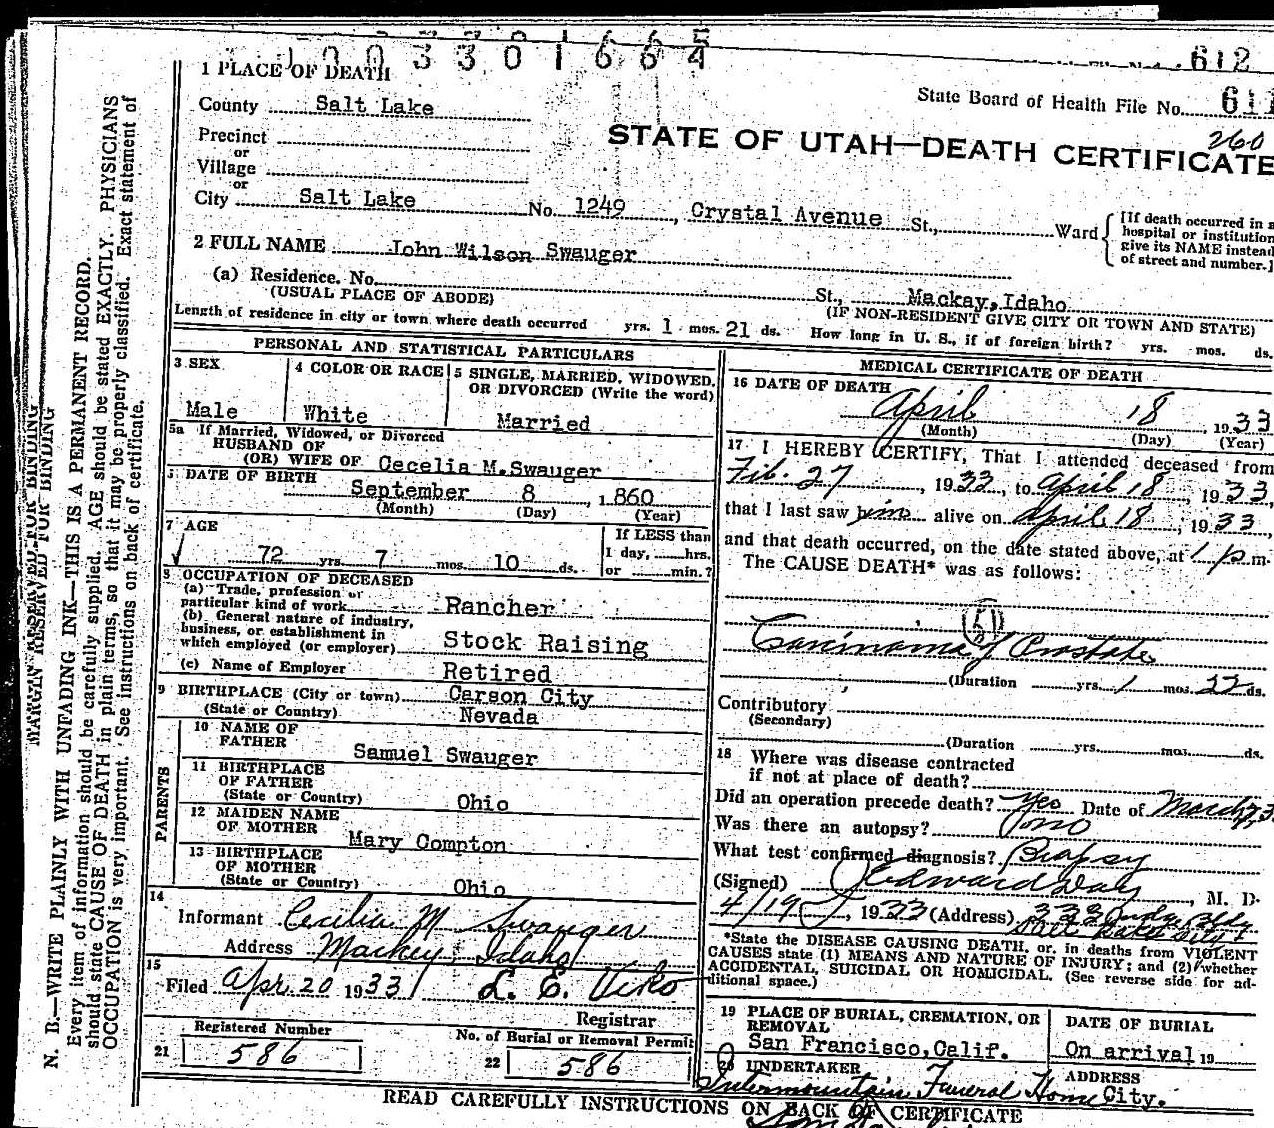 1003301664
612
1 PLACE OF DEATH
State Board of Health File No. 611
County Salt Lake
260
Precinct
STATE OF UTAH—DEATH CERTIFICATE
or
Village
or
City Salt Lake No. 1249, Crystal Avenue St., Ward
[If death occurred in a
hospital or institution
give its NAME instead
of street and number.]
2 FULL NAME John Wilson Swauger
(a) Residence. No. St., Mackay, Idaho
(USUAL PLACE OF ABODE) (IF NON-RESIDENT GIVE CITY OR TOWN AND STATE)
Length of residence in city or town where death occurred yrs. 1 mos. 21 ds. How long in U. S., if of foreign birth? yrs. mos. ds.
PERSONAL AND STATISTICAL PARTICULARS
3 SEX
Male
4 COLOR OR RACE
White
5 SINGLE, MARRIED, WIDOWED,
OR DIVORCED (Write the word)
Married
5a If Married, Widowed, or Divorced
HUSBAND OF
(OR) WIFE OF Cecelia M.Swauger
DATE OF BIRTH
September 8, 1860
(Month) (Day) (Year)
7 AGE
72 yrs. 7 mos. 10 ds.
If LESS than
1 day, hrs.
or min.?
8 OCCUPATION OF DECEASED
(a) Trade, profession or
particular kind of work Rancher
(b) General nature of industry,
business, or establishment in
which employed (or employer) Stock Raising
(c) Name of Employer Retired
9 BIRTHPLACE (City or town) Carson City
(State or Country) Nevada
PARENTS
10 NAME OF
FATHER Samuel Swauger
11 BIRTHPLACE
OF FATHER
(State or Country) Ohio
12 MAIDEN NAME
OF MOTHER Mary Compton
13 BIRTHPLACE
OF MOTHER
(State or Country) Ohio
14
Informant Cecilia M Swauger
Address Mackey, Idaho
15
Filed Apr. 20 1933 L. E. Viko
Registrar
Registered Number
21 586
No. of Burial or Removal Permit
22 586
MEDICAL CERTIFICATE OF DEATH
16 DATE OF DEATH
April 18, 1933
(Month) (Day) (Year)
17 I HEREBY CERTIFY, That I attended deceased from
Feb. 27, 1933, to April 18, 1933,
that I last saw him alive on April 18, 1933,
and that death occurred, on the date stated above, at 1 p m.
The CAUSE DEATH* was as follows:
51
Carcinoma of Prostate
(Duration yrs. 1 mos. 22 ds.
Contributory
(Secondary)
(Duration yrs. mos. ds.
18 Where was disease contracted
if not at place of death?
Did an operation precede death? Yes Date of March
Was there an autopsy? no
What test confirmed diagnosis? Biopsy
(Signed) J Edward Day, M. D.
4/19, 1933 (Address) Judge Bldg.
Salt Lake City
*State the DISEASE CAUSING DEATH, or, in deaths from VIOLENT
CAUSES state (1) MEANS AND NATURE OF INJURY; and (2) whether
ACCIDENTAL, SUICIDAL OR HOMICIDAL. (See reverse side for ad-
ditional space.)
19 PLACE OF BURIAL, CREMATION, OR
REMOVAL
San Francisco, Calif.
DATE OF BURIAL
On arrival 19
20 UNDERTAKER
Intermountain Funeral Home
ADDRESS
City.
READ CAREFULLY INSTRUCTIONS ON BACK OF CERTIFICATE
MARGIN RESERVED FOR BINDING
N. B.—WRITE PLAINLY WITH UNFADING INK—THIS IS A PERMANENT RECORD.
Every item of information should be carefully supplied. AGE should be stated EXACTLY. PHYSICIANS
should state CAUSE OF DEATH in plain terms, so that it may be properly classified. Exact statement of
OCCUPATION is very important. See Instructions on back of certificate.